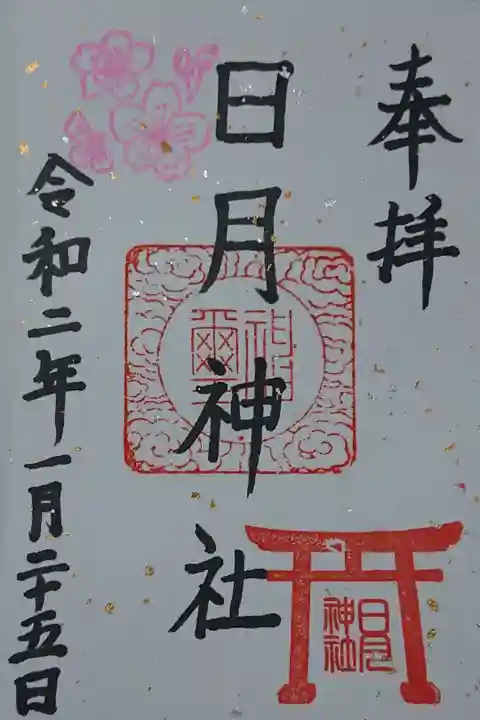 奉拝
日月神社
神璽
日月神社
令和二年一月二十五日